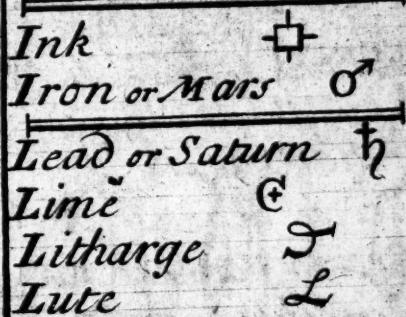 Ink
Iron or Mars ♂
Lead or Saturn ♄
Lime
Litharge
Lute